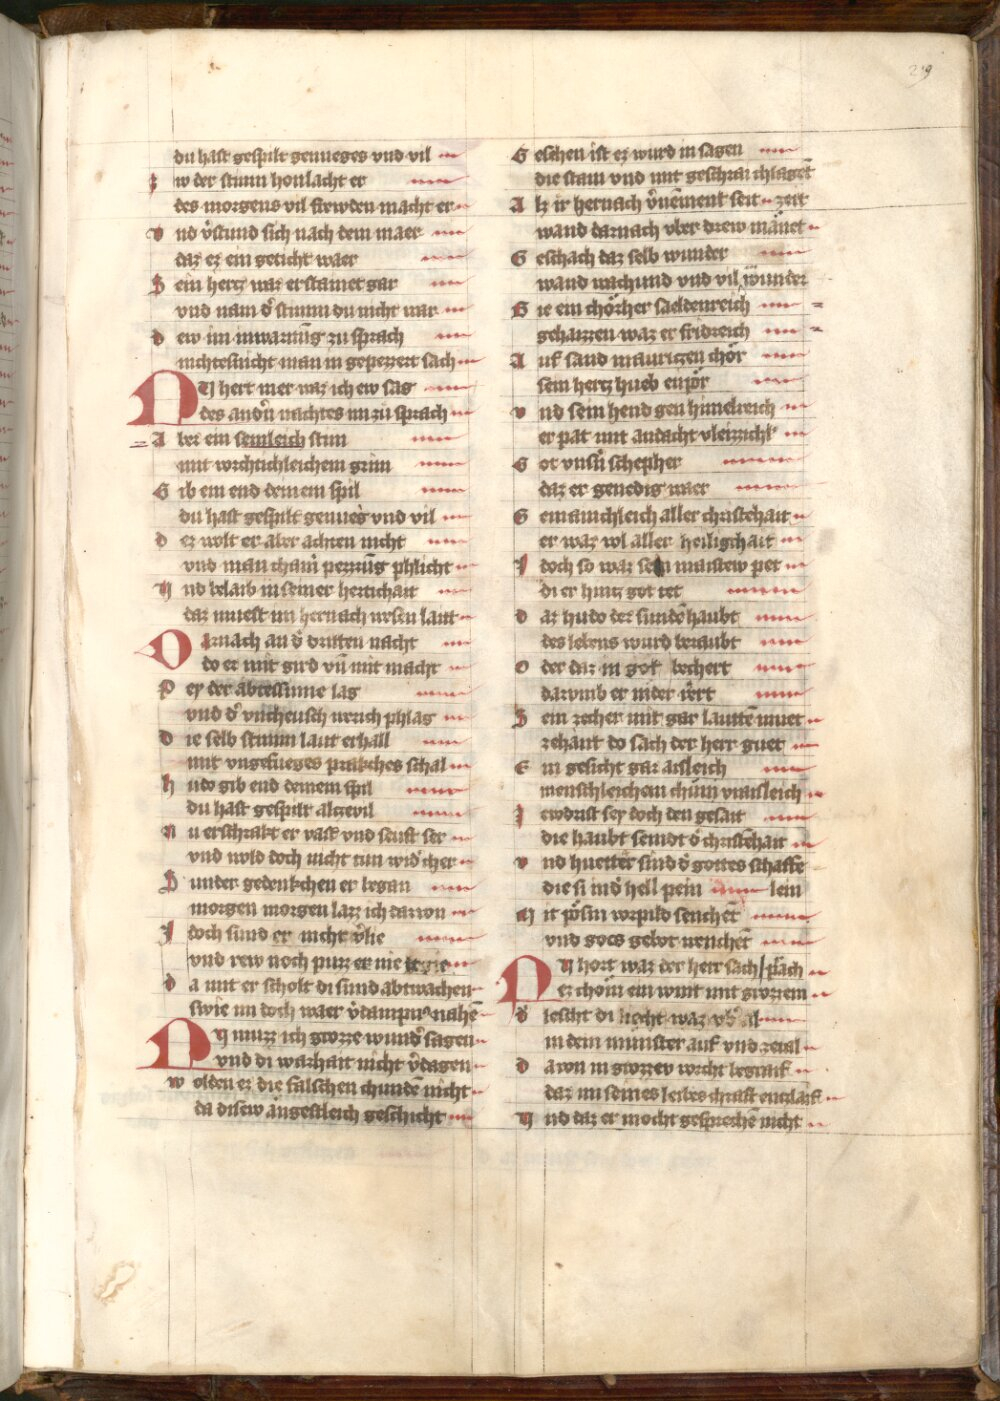 219
du hast gespilt genueges vnd vil
I w der stimm honlacht er
des morgens vil frewden macht er
v nd v̉stund sich nach dem maer
daz ez ein geticht waer
S ein hertz waz erstainet gar
vnd nam d̉ stimm du nicht war
d ew im inwarnūg zu sprach
nichtesnicht man in gepezzert sach
NU hert mer waz ich ew sag
des andn̉ nachtes im zu sprach
A ber ein semleich stim
mit vorchtichleichem grim
G ib ein end deinem spil
du hast gespilt genueg vnd vil
d ez wolt er aber achten nicht
vnd man chainr pezzrūg phlicht
U nd belaib in seiner hertichait
daz muest im hernach wesen lait
Darnach an d̉ dritten nacht
do er mit gird vn̄ mit macht
P ey der abtessinne lag
vnd d̉ vncheusch wench phlag
D ie selb stimm laut erhall
mit vngefueges prahches schal
h udo gib end deinem spil
du hast gespilt alcevil
N u erschrakt er vast vnd seuft ser
vnd wold doch nicht tun wid̉cher
S under gedenkchen er began
morgen morgen lazz ich darvon
I doch sund er nicht v̉lie
vnd rew noch puzz er nie
d a mit er scholt di sund abtwachen
swie im doch waer v̉dampn̉ nahē
NU muzz ich grozze wund̉ sagen
vnd di warhait nicht v̉dagen
w olden ez die falschen chundē nicht
da disew angestleich geschicht
G eschen ist ez wurd in sagen
die stain vnd mit geschrai chlaget̄
A lz ir hernach v̉nement seit zeit
wand darnach vber drew mānet
G eschach daz selb wunder
wand wachund vnd vil wunder
G ie ein chorher saeldenreich
gehaizzen waz er fridreich
A uf sand mauritzen chor
sein hertz hueb enpor
v nd sein hend gen himelreich
er pat mit andacht vleizzichl̉
G ot vnsn̉ schepher
daz er genedig waer
G emainchleich aller christēhait
er waz vol aller heiligchait
I doch so waz sein maistew pet
di er hintz got tet
D az hudo der sundē haubt
des lebens wurd beraubt
O der daz in got bechert
darvmb er nider chert
S ein zecher mit gar lautē muet
zehant do sach der herr guet
E in gesicht gar aisleich
menschleichem chunn vnaisleich
I ewdrist sey doch den gesait
die haubt seindt d̉ christēhait
v nd huetter sind d̉ gottes schaffe
die si in d̉ hell pein lein
M it posm vorpild senchēt
vnd gocs gebot wenchēt
NU hort waz der herr sach / sprach
ez chom ein wint mit grozzem
d̉ lescht di liecht waz v̉b̉ al
in dem munster auf vnd zetal
D avon in grozzev vorcht begraif
daz im seines leibes chraft entslaif
U nd daz er mocht gesprechē nicht